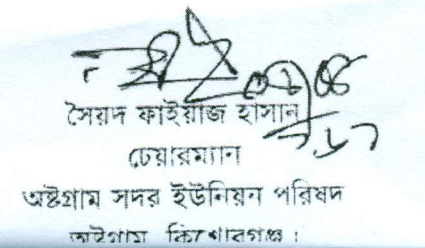 সৈয়দ ফাইয়াজ হাসান
চেয়ারম্যান
অষ্টগ্রাম সদর ইউনিয়ন পরিষদ
অষ্টগ্রাম কিশোরগঞ্জ।